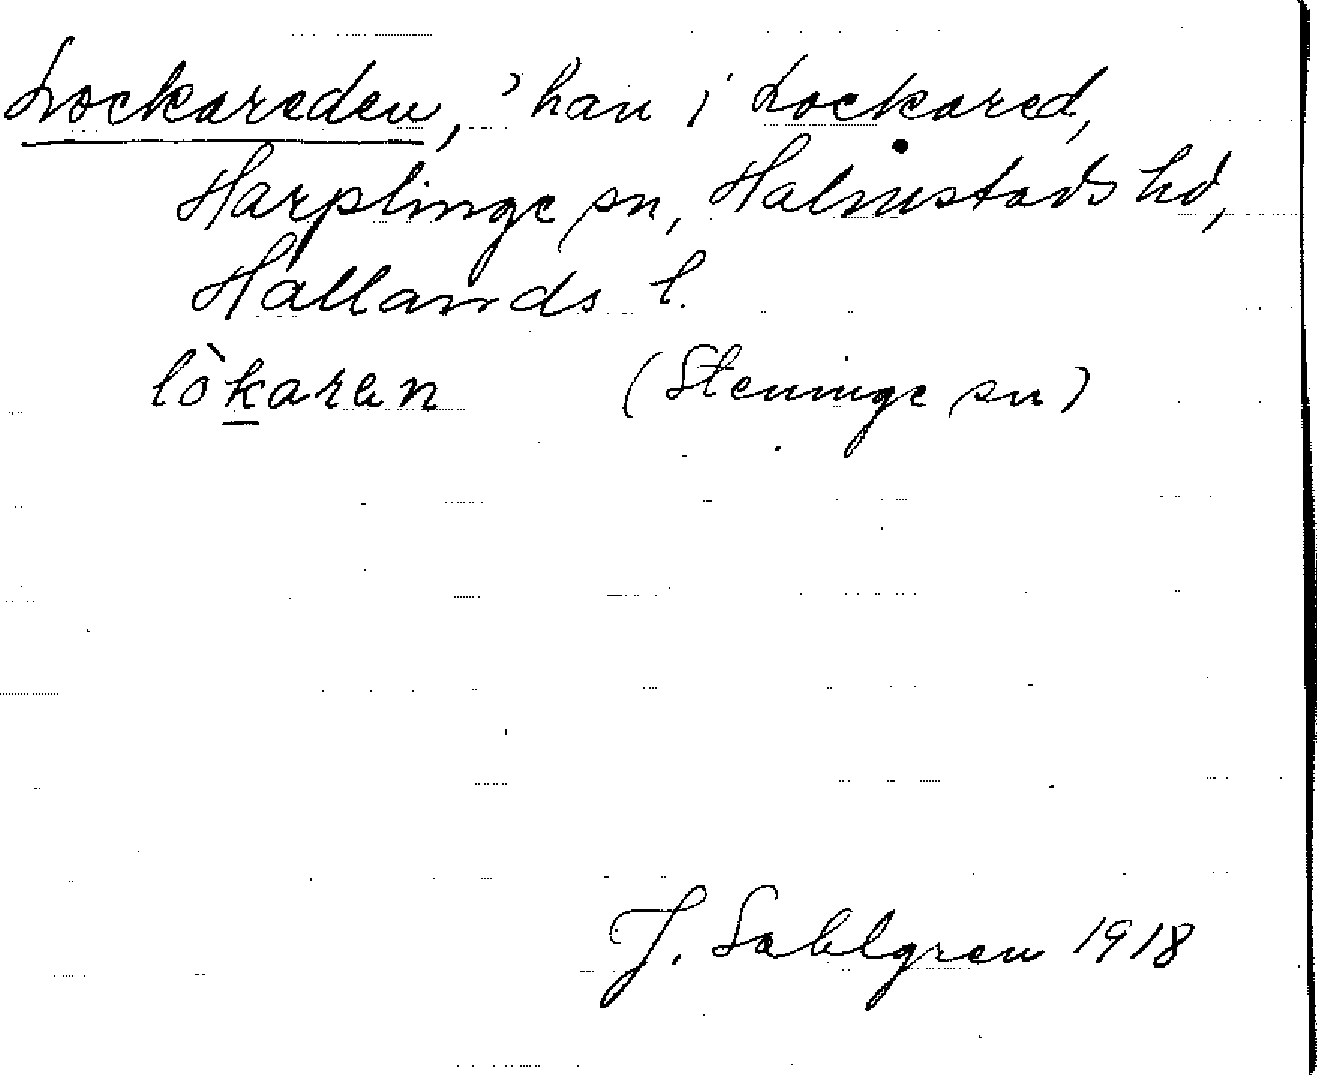 Lockareden, 'han i' Lockared,
Harplinge sn, Halmstads hd,
Hallands l.
lòkaren (Steninge sn)
J. Sahlgren 1918